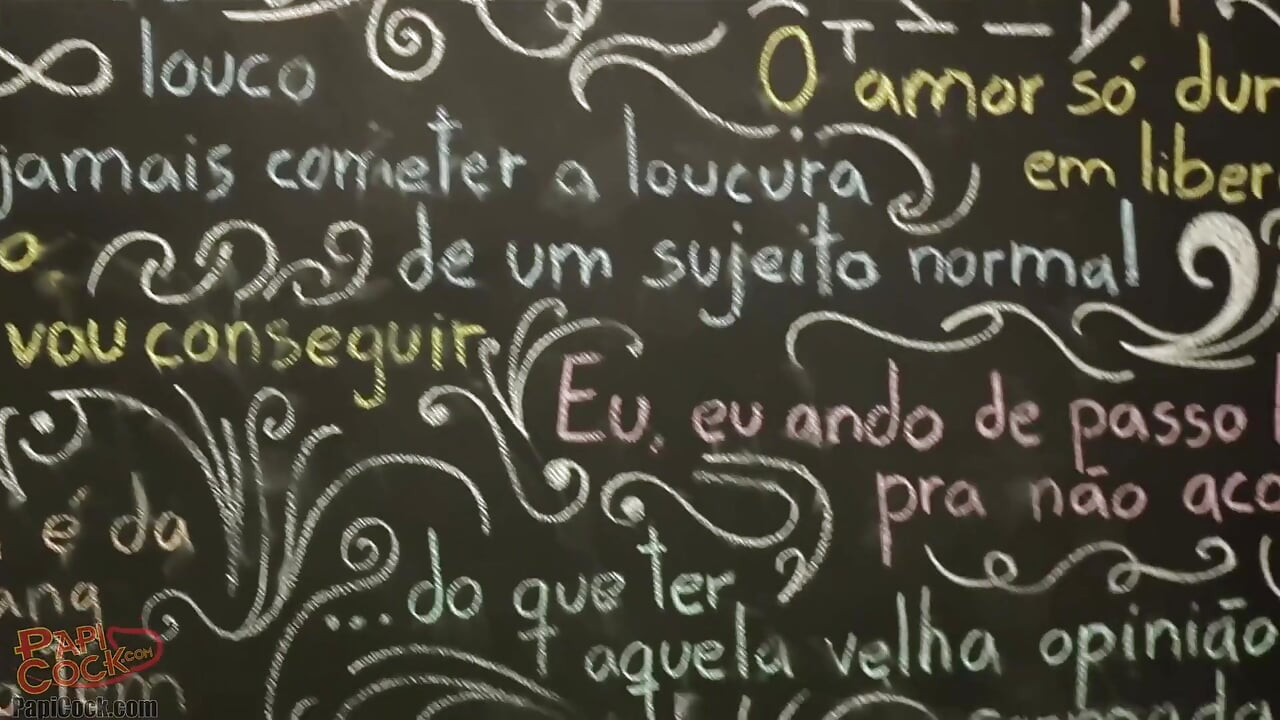 louco
O amor só dur
jamais cometer a loucura
em liber
o
de um sujeito normal
vou conseguir
Eu, eu ando de passo
pra não aco
é da
ang
...do que ter
aquela velha opinião
PAPI
COCK.COM
PapiCock.com